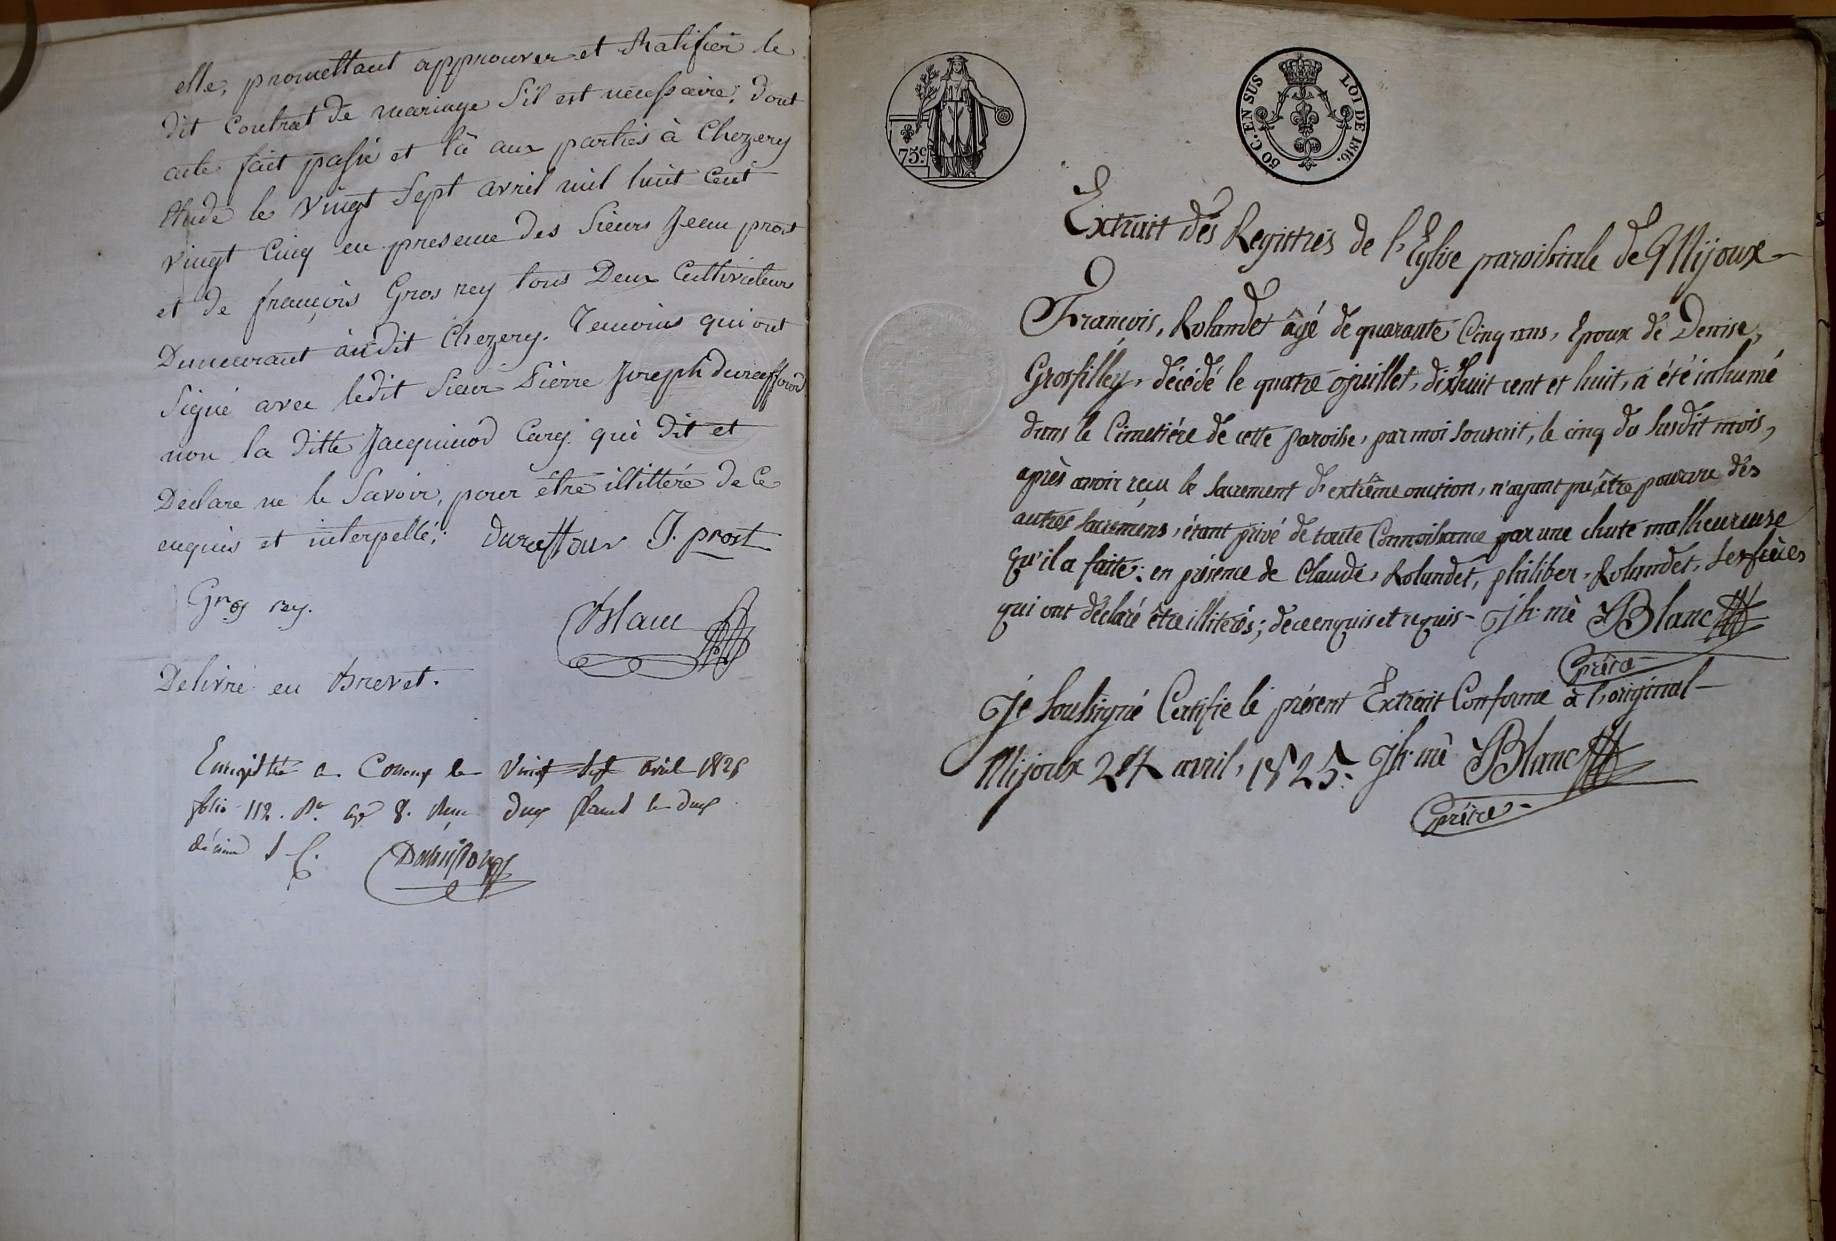 elle, promettant approuver et Ratifier le
dit Contrat de mariage S'il est nécessaire; dont
acte fait passé et lû aux parties à Chezery
étude le vingt Sept avril mil huit Cent
vingt Cinq en presence des Sieurs Jean prost
et de françois Gros rey tous Deux Cultivateurs
Demeurant audit Chezery. Temoins qui ont
Signé avec ledit Sieur Pierre Joseph duraffour
non la ditte Jacquinod Carry qui dit et
Déclare ne le Savoir, pour être illittéré de Ce
enquis et interpellé;. duraffour J. prost
Gros rey.
Blanc
Delivré en Brevet.
Enregistré a Collonges le vingt sept avril 1825
folio 112. Ro. Ce 8. Reçu deux francs le
décime
75c
50 C. EN SUS
LOI DE 1816.
Extrait des Registres de l'Eglise paroissiale de Mijoux
François, Rolandet âgé de quarante Cinq ans, Epoux de Denise,
Grosfilley, décédé le quatre juillet, dixhuit cent et huit, a été inhumé
dans le Cimetière de cette paroisse, par moi Souscrit, le cinq du Susdit mois,
après avoir reçu le Sacrement d'extrême onction, n'ayant pu être pourvu des
autres Sacremens, étant privé de toute Connoissance par une chute malheureuse
qu'il a faite; en présence de Claude, Rolandet, philiber, Rolandet, Ses frères
qui ont déclaré être illiterés; de ce enquis et requis - Jh. mè Blanc
prêtre
Je Soussigné Certifie le présent Extrait Conforme à l'original
Mijoux 24 avril, 1825. Jh. mè Blanc
prêtre